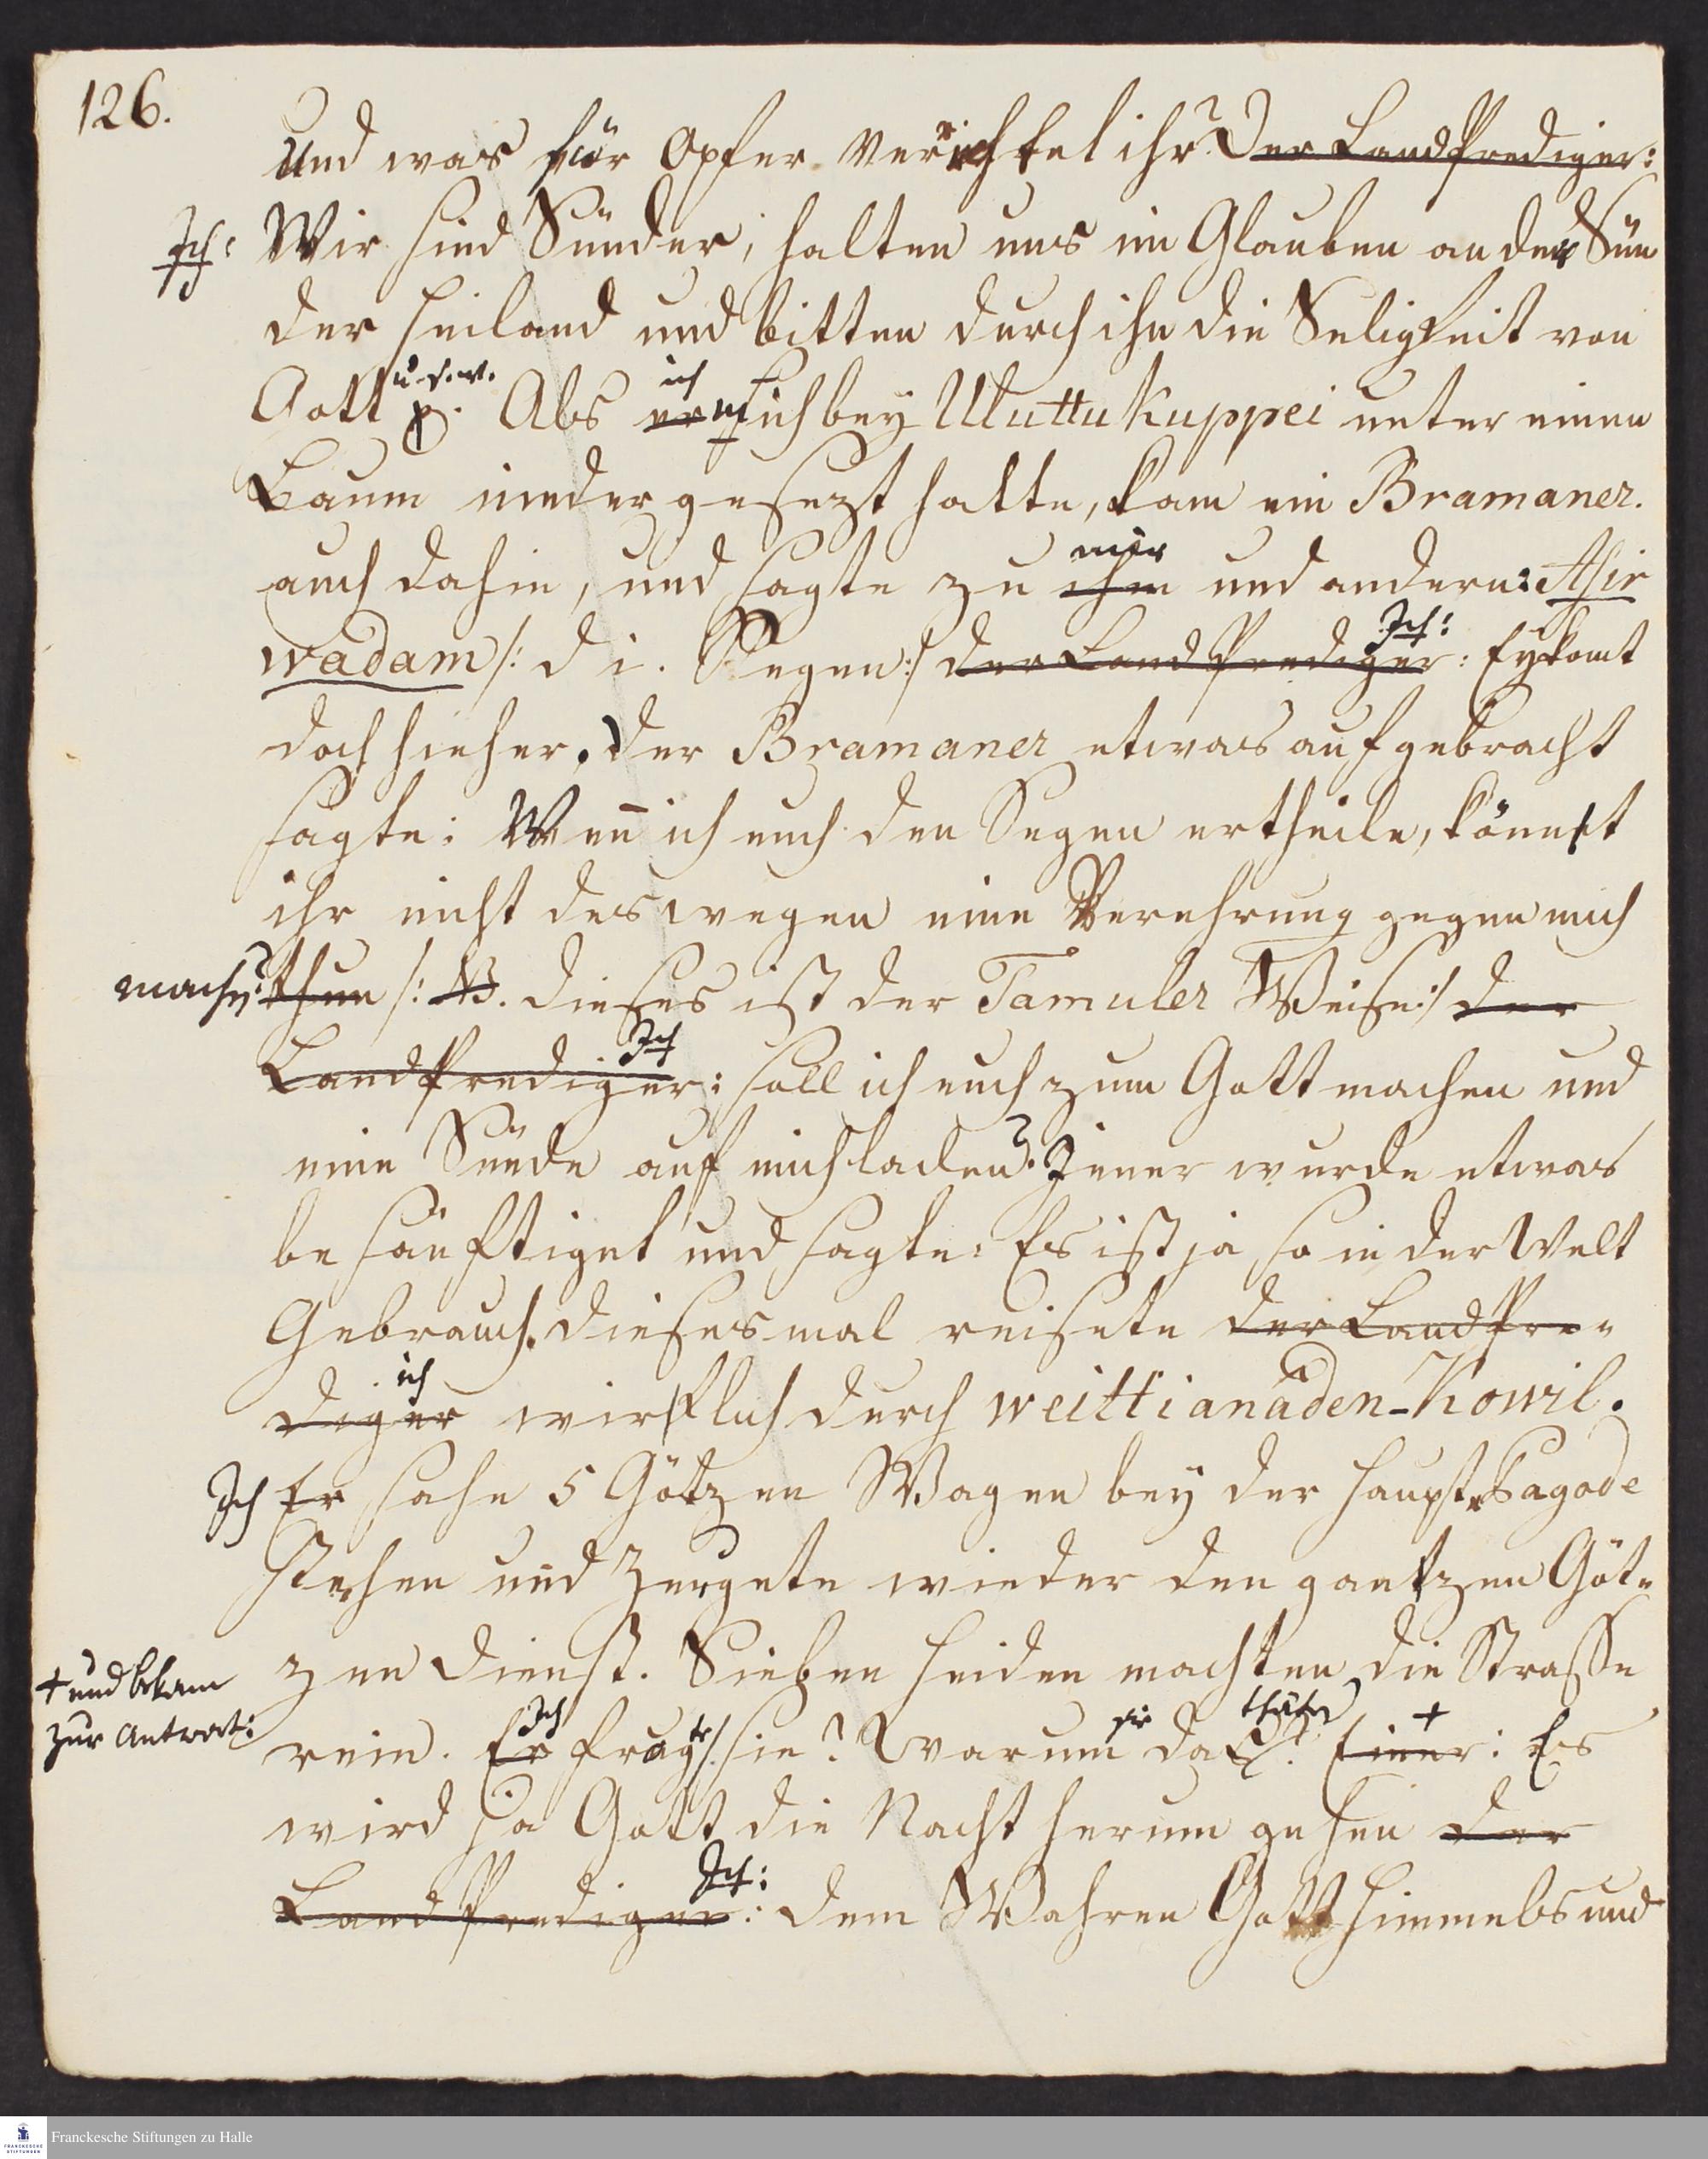 126.
und was für Opfer verrichtet ihr? Der LandPrediger:
Ich: Wir sind Sünder, halten uns im Glauben an der Sün
der Heiland und bitten durch ihn die Seligkeit von
u. s. w. ich
Gott p. Als er mich bey Uluttukuppei unter einen
Baum nieder gesezt hatte, kam ein Bramaner.
mir
auch dahin, und sagte zu ihm und andern: Asir
Ich:
wadam /: d. i. Segen :/ der Land Prediger: Ey komt
doch hieher. Der Bramaner etwas aufgebracht
sagte: Weñ ich euch den Segen ertheile, könnt
ihr nicht deswegen eine Verehrung gegen mich
machen? thun /: NB. dieses ist der Tamuler Weise :/ der
Ich
LandPrediger: soll ich euch zum Gott machen und
eine Sünde auf mich laden? Jener wurde etwas
besänftiget und sagte: Es ist ja so in der Welt
Gebrauch. Dieses mal reisete der LandPre-
ich
diger wirklich durch weittianäden-Kowil.
Ich Er sahe 5 Götzen Wagen bey der Haupt-Pagode
stehen und zeugete wieder den gantzen Göt-
zen Dienst. Sieben Heiden machten die Strasse
+ und bekam
zur Antwort:
Ich sie thäten +
rein. Er fragte sie? Warum das? Einer: Es
wird ja Gott die Nacht herum gehen der
Ich:
LandPrediger: dem Wahren Gott Himmels und
Franckesche Stiftungen zu Halle